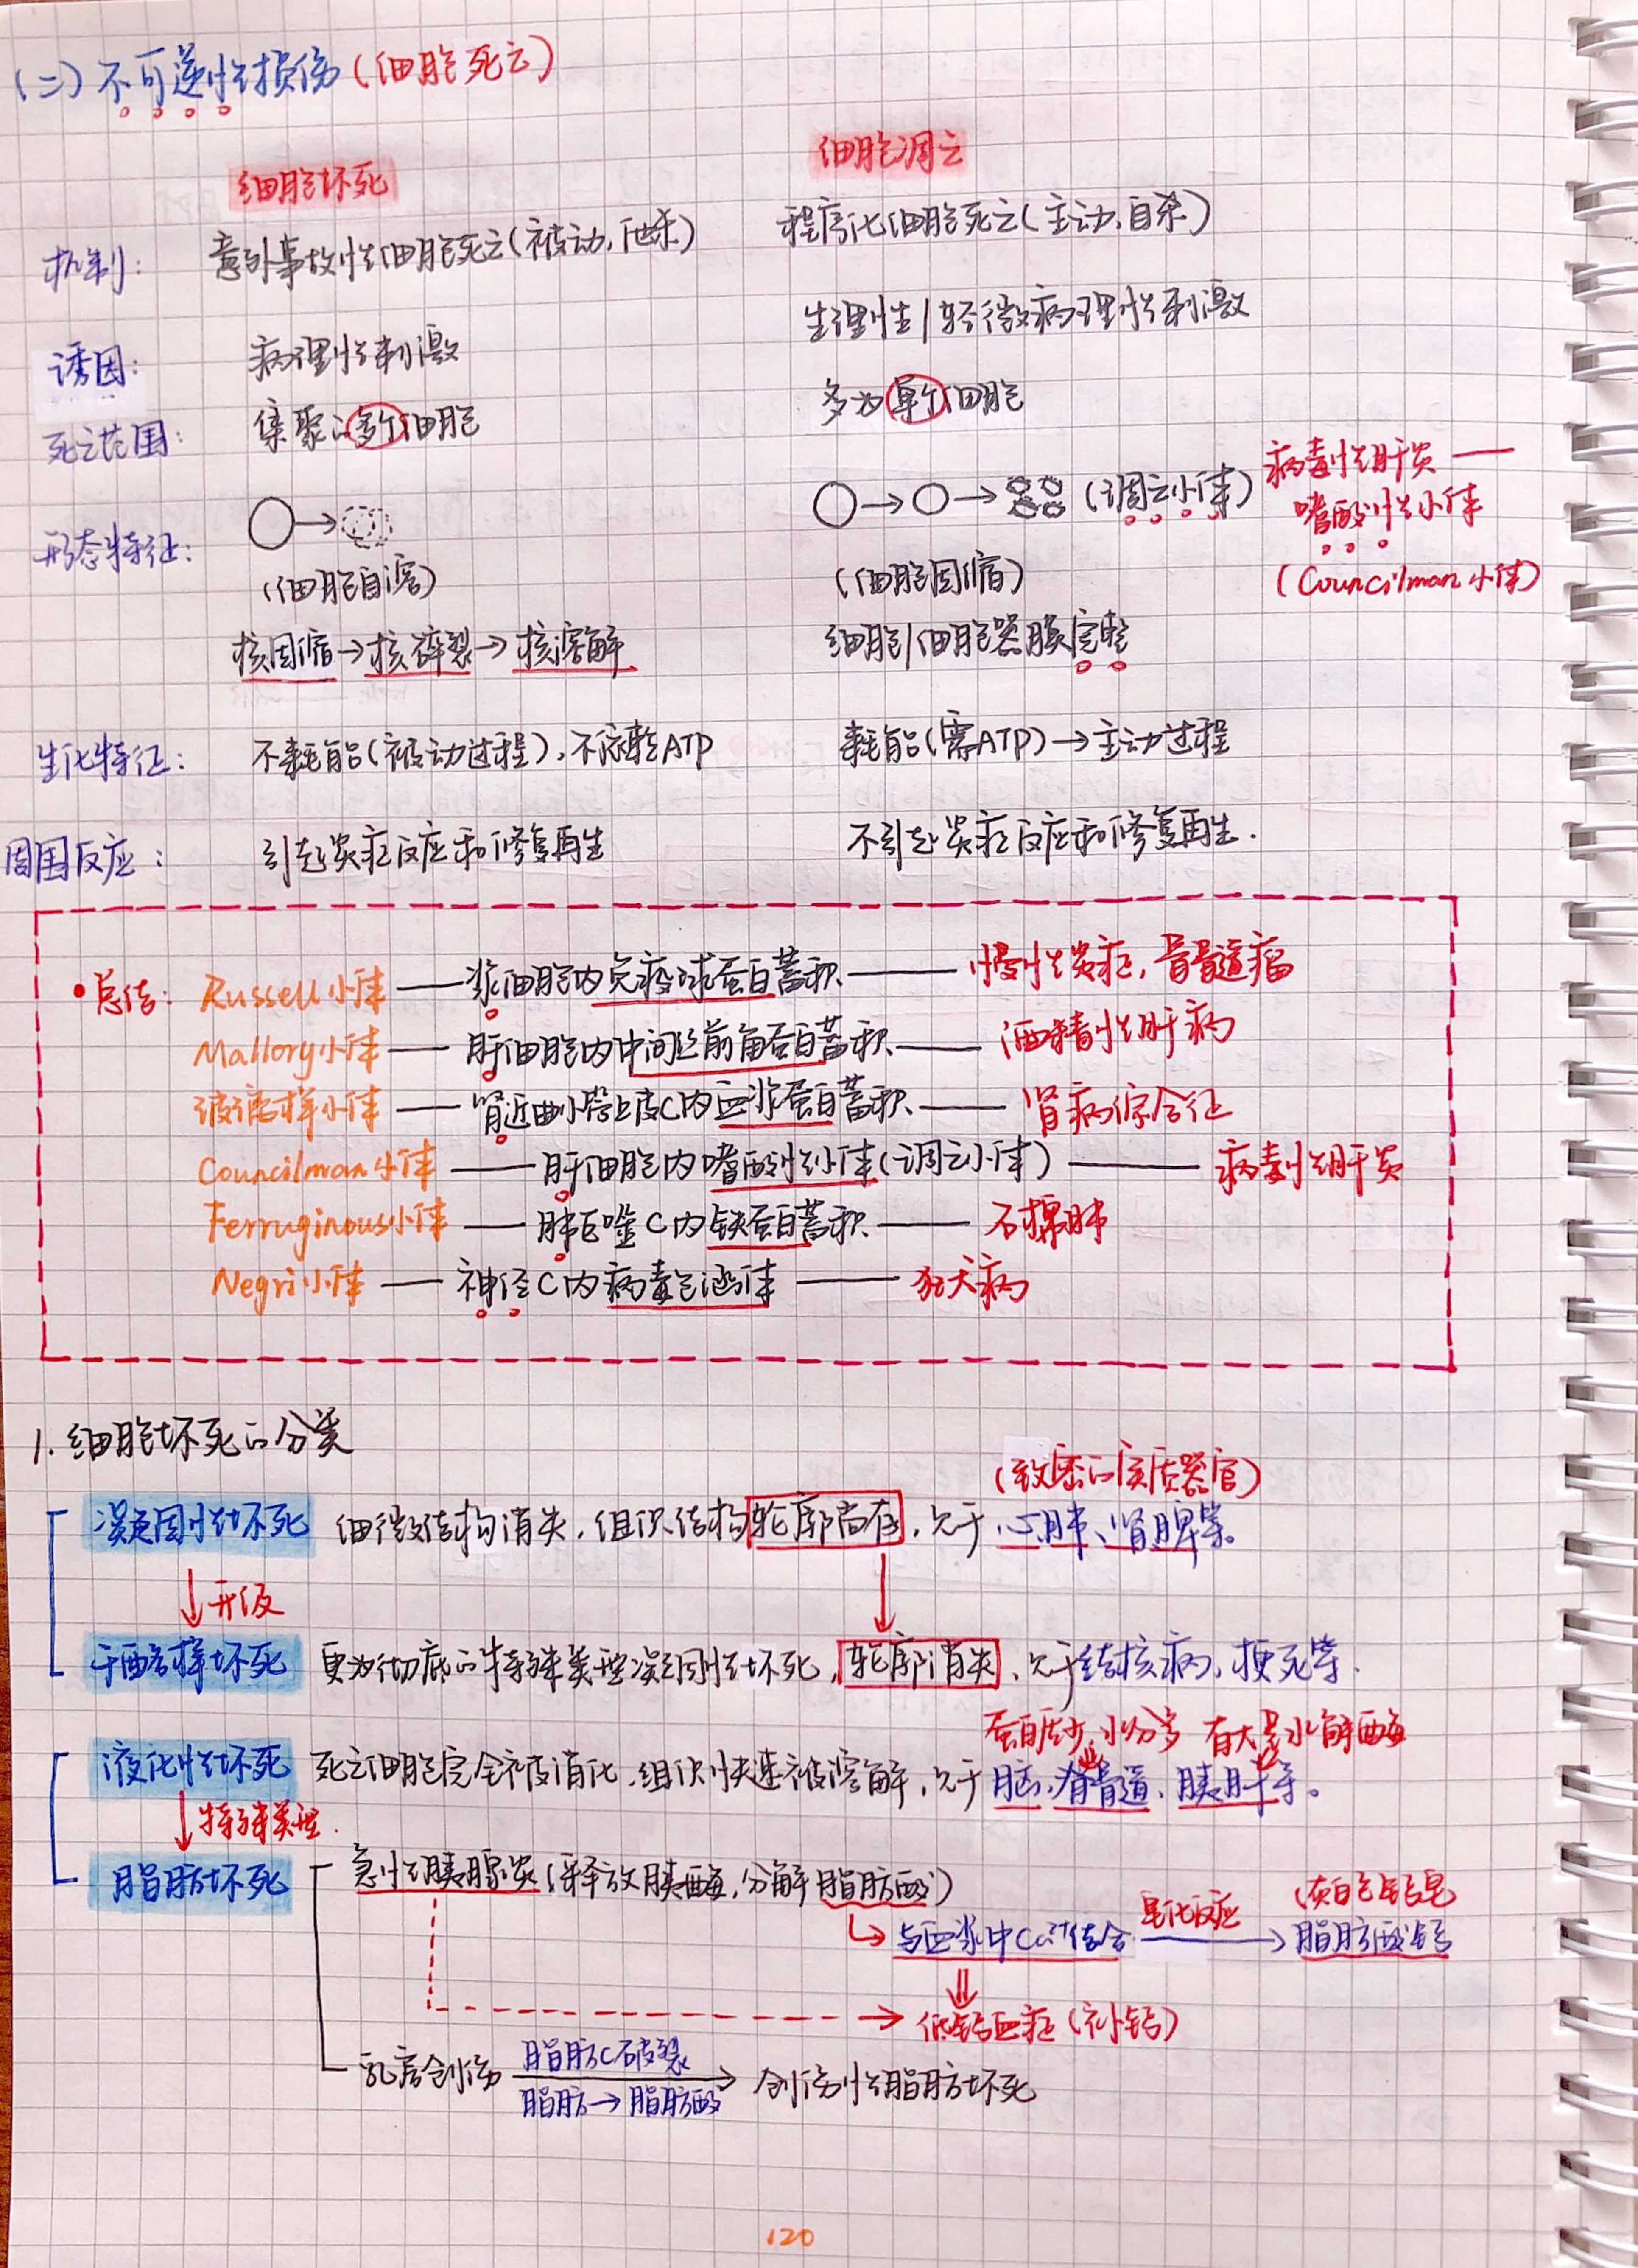 (二)不可逆性损伤(细胞死亡)
细胞坏死 细胞凋亡
机制: 意外事故性细胞死亡(被动,他杀) 程序化细胞死亡(主动,自杀)
诱因: 病理性刺激 生理性/轻微病理性刺激
死亡范围: 集聚的多个细胞 多为单个细胞
形态特征: ○→ ○→○→ (凋亡小体) 病毒性肝炎——
嗜酸性小体
(Councilman小体)
(细胞自溶) (细胞固缩)
核固缩→核碎裂→核溶解 细胞/细胞器膜完整
生化特征: 不耗能(被动过程),不依赖ATP 耗能(需ATP)→主动过程
周围反应: 引起炎症反应和修复再生 不引起炎症反应和修复再生.
•总结: Russell小体——浆细胞内免疫球蛋白蓄积——慢性炎症,骨髓瘤
Mallory小体——肝细胞内中间丝前角蛋白蓄积——酒精性肝病
玻璃样小体——肾近曲小管上皮C内血浆蛋白蓄积——肾病综合征
Councilman小体——肝细胞内嗜酸性小体(凋亡小体)——病毒性肝炎
Ferruginous小体——肺巨噬C内铁蛋白蓄积——石棉肺
Negri小体——神经C内病毒包涵体——狂犬病
1.细胞坏死的分类
(致密的实质器官)
凝固性坏死 细微结构消失,组织结构轮廓尚存,见于心肺、肾脾等。
↓升级
干酪样坏死 更为彻底的特殊类型凝固性坏死,轮廓消失,见于结核病,梗死等.
蛋白质少,水分多 有大量水解酶
液化性坏死 死亡细胞完全被消化,组织快速被溶解,见于脑,脊髓、胰肝等。
↓特殊类型.
脂肪坏死 急性胰腺炎(释放胰酶,分解脂肪酸)
与血浆中Ca²⁺结合 皂化反应→ 脂肪酸钙 (灰白色钙皂
低钙血症(补钙)
乳房创伤 脂肪C破裂 脂肪→脂肪酸 → 创伤性脂肪坏死
120